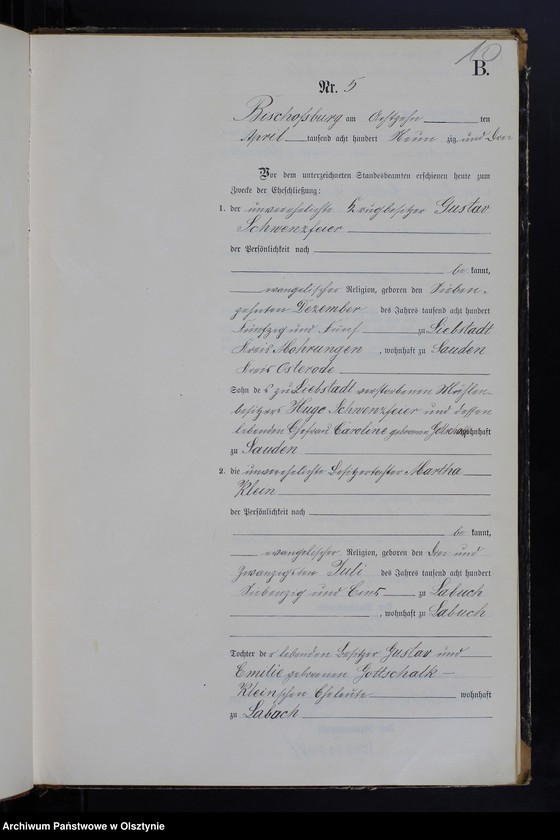 10
B.
Nr. 5
Bischofsburg am Achtzehn ten
April tausend acht hundert Neun zig und Drei
Vor dem unterzeichneten Standesbeamten erschienen heute zum
Zwecke der Eheschließung:
1. der unverehelichte Krugbesitzer Gustav
Schwenzfeier
der Persönlichkeit nach
be kannt,
evangelischer Religion, geboren den Sieben-
zehnten Dezember des Jahres tausend acht hundert
Fünfzig und Fünf zu Liebstadt
Kreis Mohrungen, wohnhaft zu Sauden
Kreis Osterode
Sohn des zu Liebstadt verstorbenen Mühlen-
besitzers Hugo Schwenzfeier und dessen
lebenden Ehefrau Caroline geborene wohnhaft
zu Sauden
2. die unverehelichte Besitzertochter Martha
Klein
der Persönlichkeit nach
be kannt,
evangelischer Religion, geboren den Drei und
Zwanzigsten Juli des Jahres tausend acht hundert
Siebenzig und Eins zu Labuch
, wohnhaft zu Labuch
Tochter der lebenden Besitzer Gustav und
Emilie geborenen Gottschalk
Klein'schen Eheleute wohnhaft
zu Labach
Archiwum Państwowe w Olsztynie